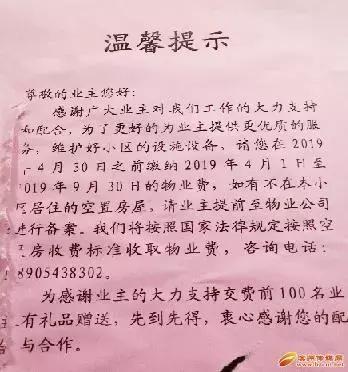 温馨提示
尊敬的业主您好：
感谢广大业主对我们工作的大力支持
和配合，为了更好的为业主提供更优质的服
务，维护好小区的设施设备，请您在2019
年4月30日之前缴纳2019年4月1日至
2019年9月30日的物业费，如有不在本小
区居住的空置房屋，请业主提前至物业公司
进行备案。我们将按照国家法律规定按照空
房收费标准收取物业费，咨询电话：
8905438302。
为感谢业主的大力支持交费前100名业
主有礼品赠送，先到先得，衷心感谢您的配
与合作。
滨州传媒网